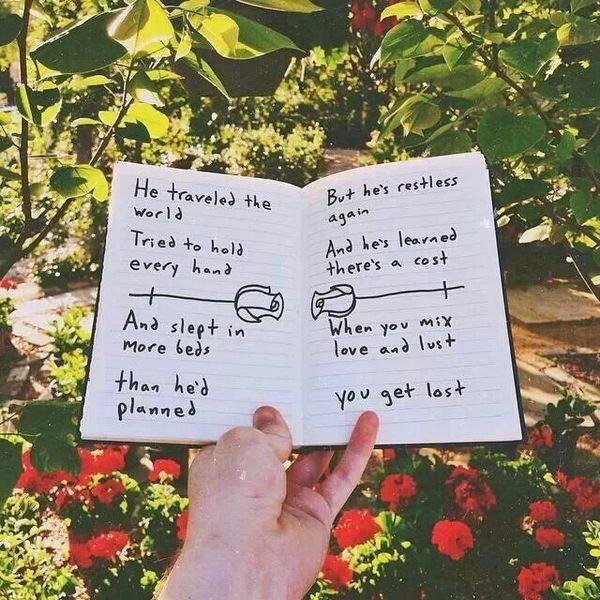 He traveled the
world
Tried to hold
every hand
And slept in
more beds
than he'd
planned
But he's restless
again
And he's learned
there's a cost
When you mix
love and lust
you get lost